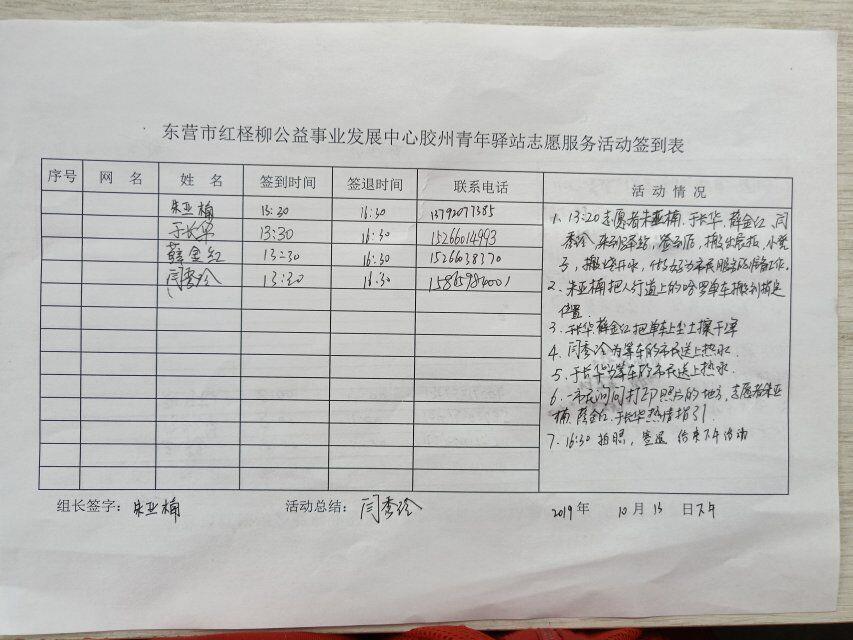 东营市红柽柳公益事业发展中心胶州青年驿站志愿服务活动签到表
序号 网 名 姓 名 签到时间 签退时间 联系电话 活 动 情 况
朱亚楠 13:20 16:30 13792077385
于长华 13:30 16:30 15266014993
薛金红 13:30 16:30 15266038370
闫秀玲 13:30 16:30
1. 13:20志愿者朱亚楠、于长华、薛金红、闫
秀玲 来到驿站,签到后,搬出展板、小凳
子,搬烧开水,做好为市民服务的准备工作。
2、朱亚楠把人行道上的哈罗单车搬到指定
位置.
3、于长华薛金红把单车上尘土擦干净
4、闫秀玲为等车的市民送上热水.
5、于长华为等车的市民送上热水.
6、一市民询问打印照片的地方,志愿者朱亚
楠、薛金红、于长华热情指引.
7、16:30 拍照,签退 结束下午活动
组长签字: 朱亚楠 活动总结: 闫秀玲 2019 年 10 月 13 日下午